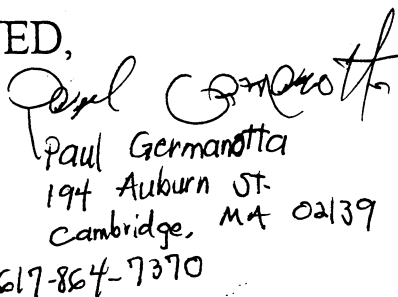 ED,
Paul Germanotta
Paul Germanotta
194 Auburn St.
Cambridge, MA 02139
617-864-7370